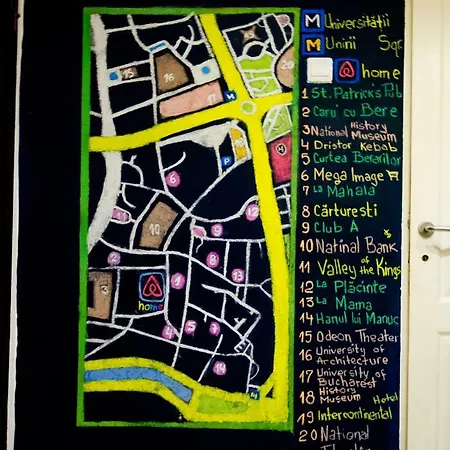 M Universității
M Unirii Sqr
home
1 St. Patrick's Pub
2 Caru' cu Bere
3 National History Museum
4 Dristor Kebab
5 Curtea Berarilor
6 Mega Image
7 La Mahala
8 Cărturești
9 Club A
10 Natinal Bank
11 Valley of the Kings
12 La Plăcinte
13 La Mama
14 Hanul lui Manuc
15 Odeon Theater
16 University of Architecture
17 University of Bucharest
18 History Museum
19 Intercontinental Hotel
20 National
15
16
17
M
20
P
4
6
10
11
12
9
2
8
13
3
home
1
14
5
7
19